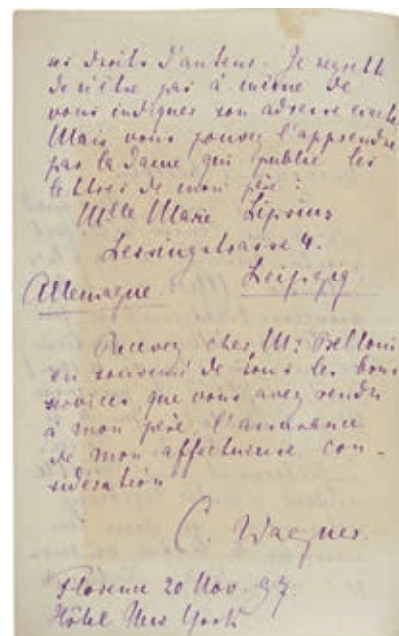 ses droits d'auteur. Je regrette
de n'être pas à même de
vous indiquer son adresse exacte
Mais vous pouvez l'apprendre
par la dame qui publie les
lettres de mon père :
Mlle Marie Lipsius
Lessingstrasse 4.
Allemagne Leipzig.
Recevez cher Mr. Belloni
en souvenir de tous les bons
services que vous avez rendu
à mon père, l'assurance
de mon affectueuse con-
sidération
C. Wagner.
Florence 20 Nov. 97
Hôtel New York